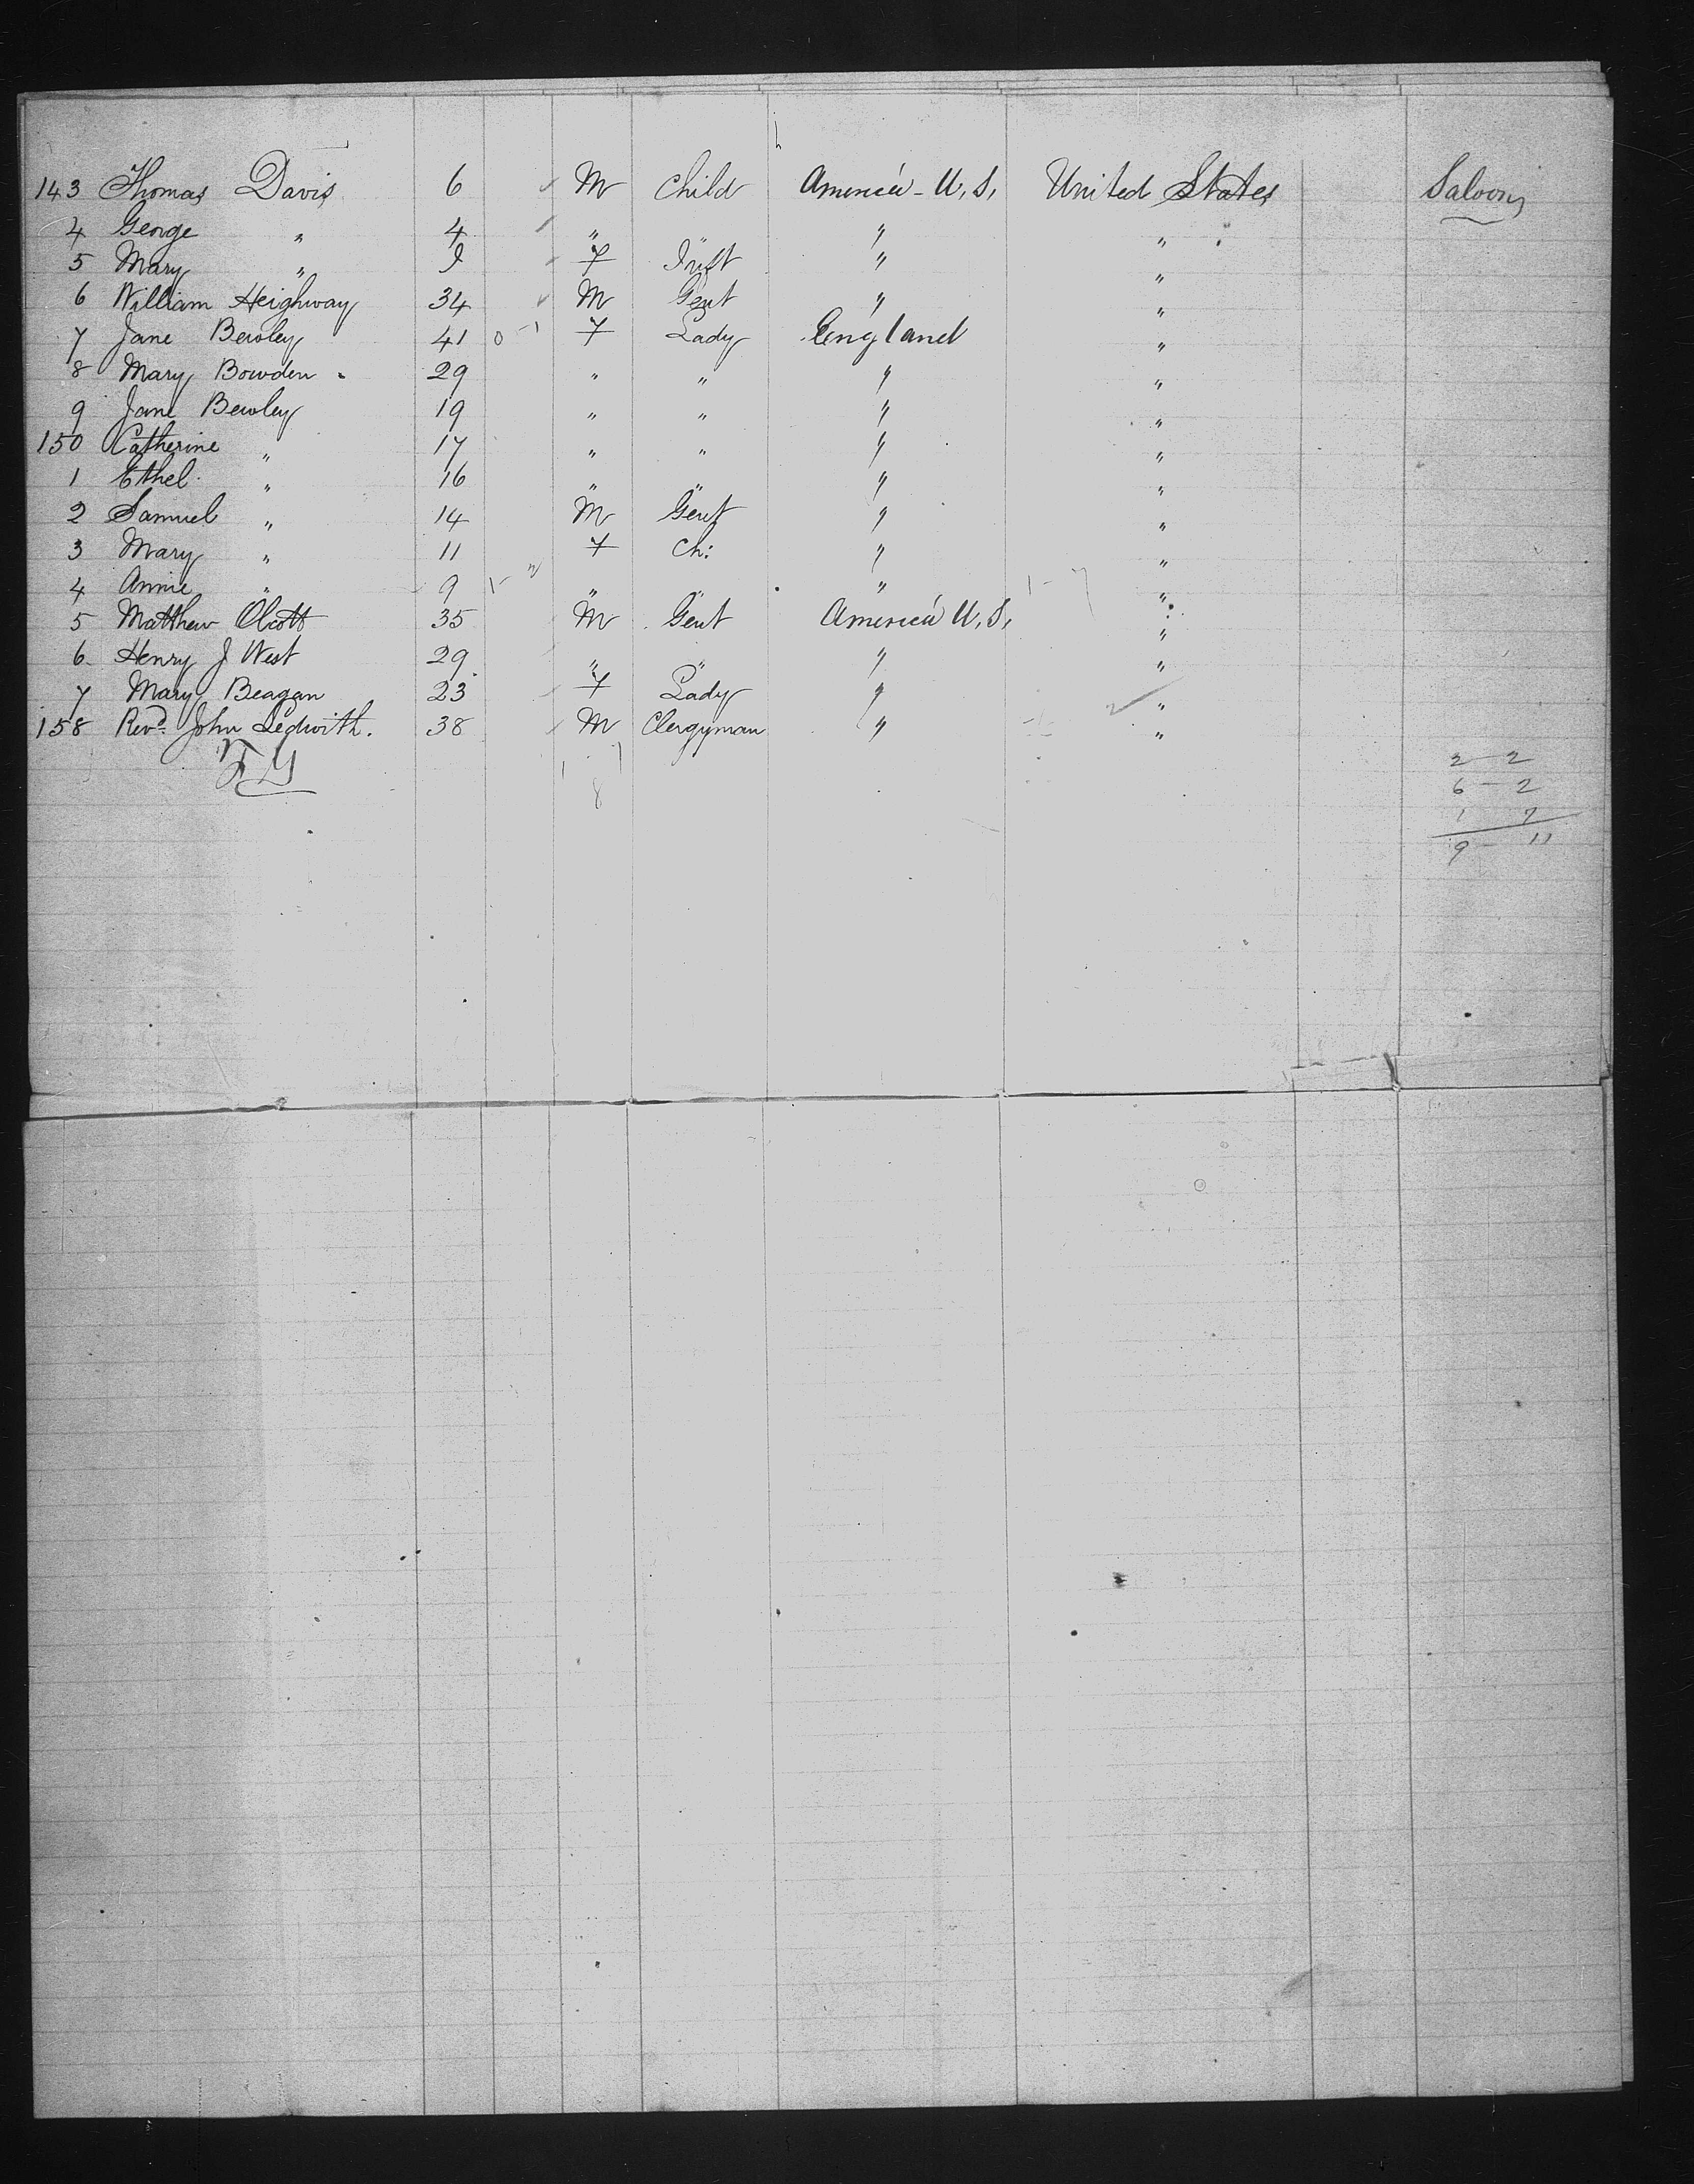 143 Thomas Davis 6 M Child America - U.S. United States Saloon
4 George " 4 " " " "
5 Mary " F Inft " "
6 William Heighway 34 M Gent " "
7 Jane Bewley 41 F Lady England "
8 Mary Bowden 29 " " " "
9 Jane Bewley 19 " " " "
150 Catherine " 17 " " " "
1 Ethel " 16 " " " "
2 Samuel " 14 M Gent " "
3 Mary " 11 F Ch: " "
4 Annie " 9 " " " "
5 Matthew Olcott 35 M Gent America U.S. "
6 Henry J West 29 " " " "
7 Mary Beagan 23 F Lady " "
158 Revd. John Ledwith. 38 M Clergyman " "
8
2 - 2
6 - 2
1 7
9 - 11